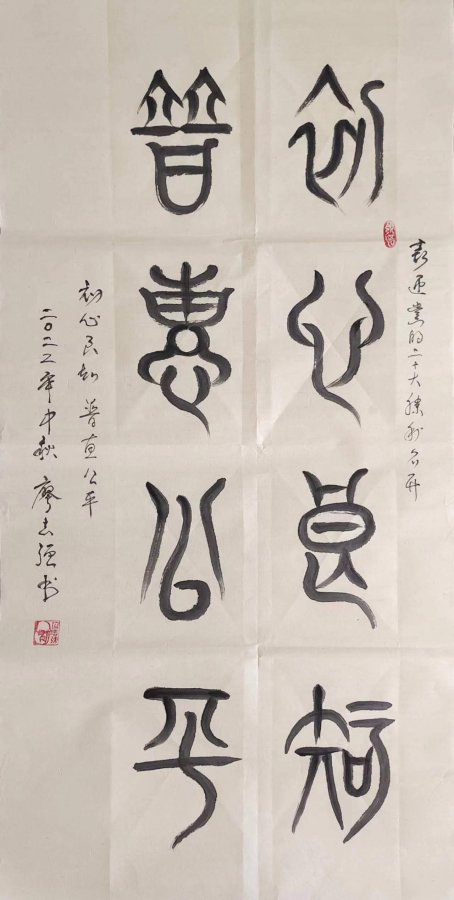 喜迎党的二十大胜利召开
初心良知
普惠公平
初心良知 普惠公平
二〇二二年中秋 廖志强书